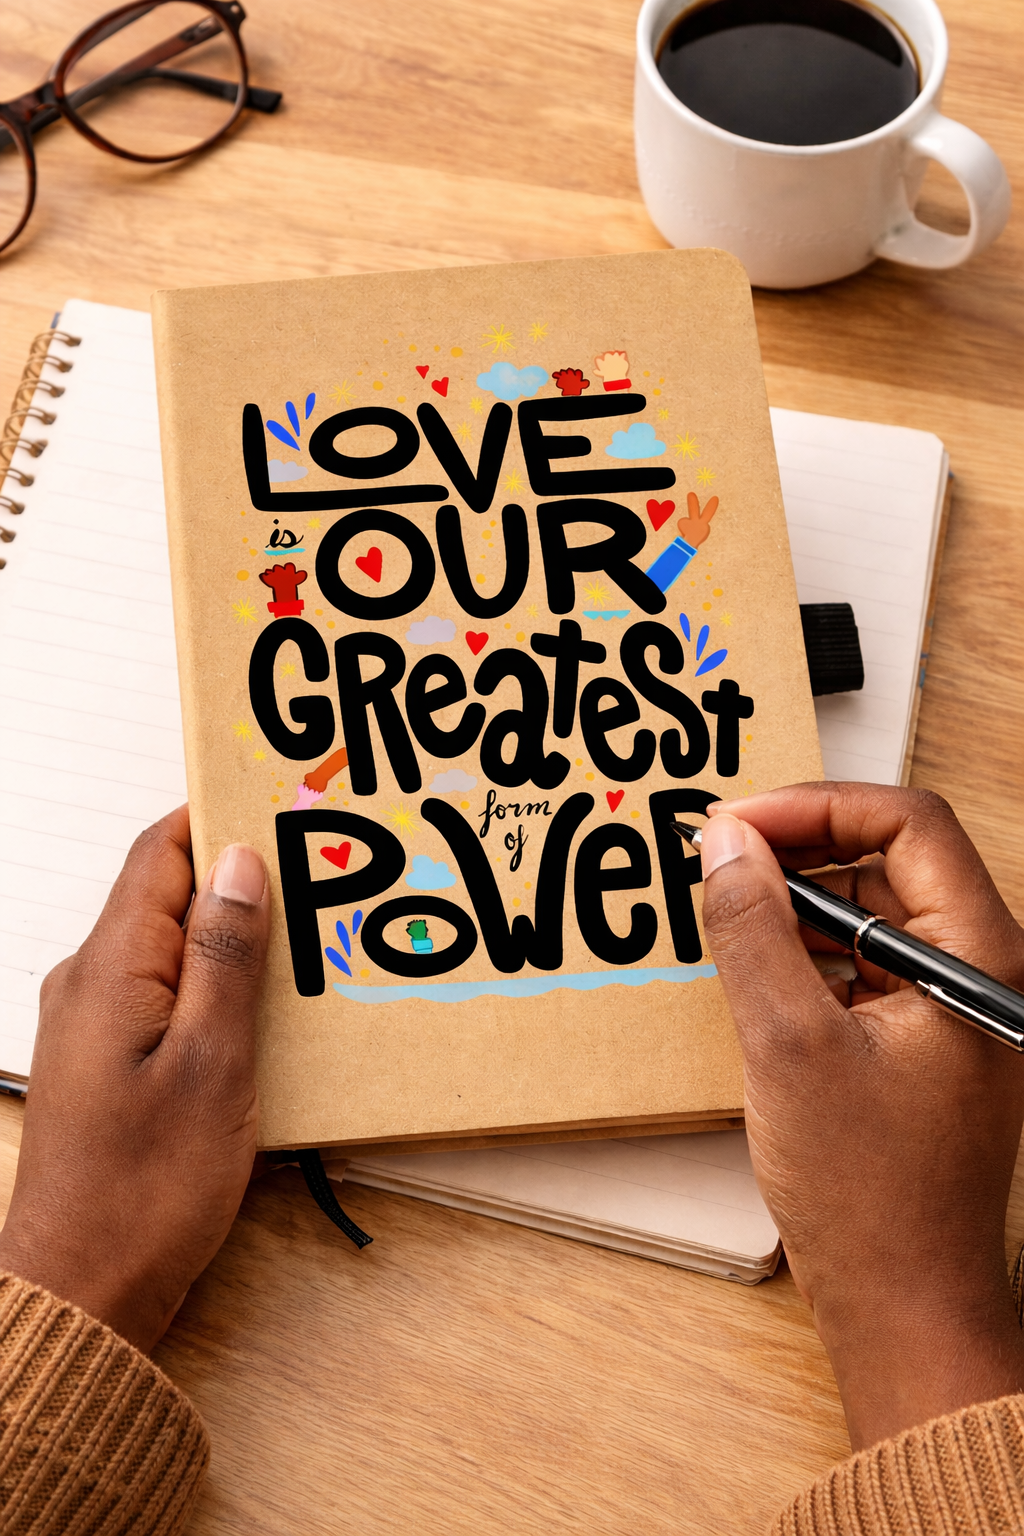 LOVE
is OUR
GReatest
form
of
PoWeR